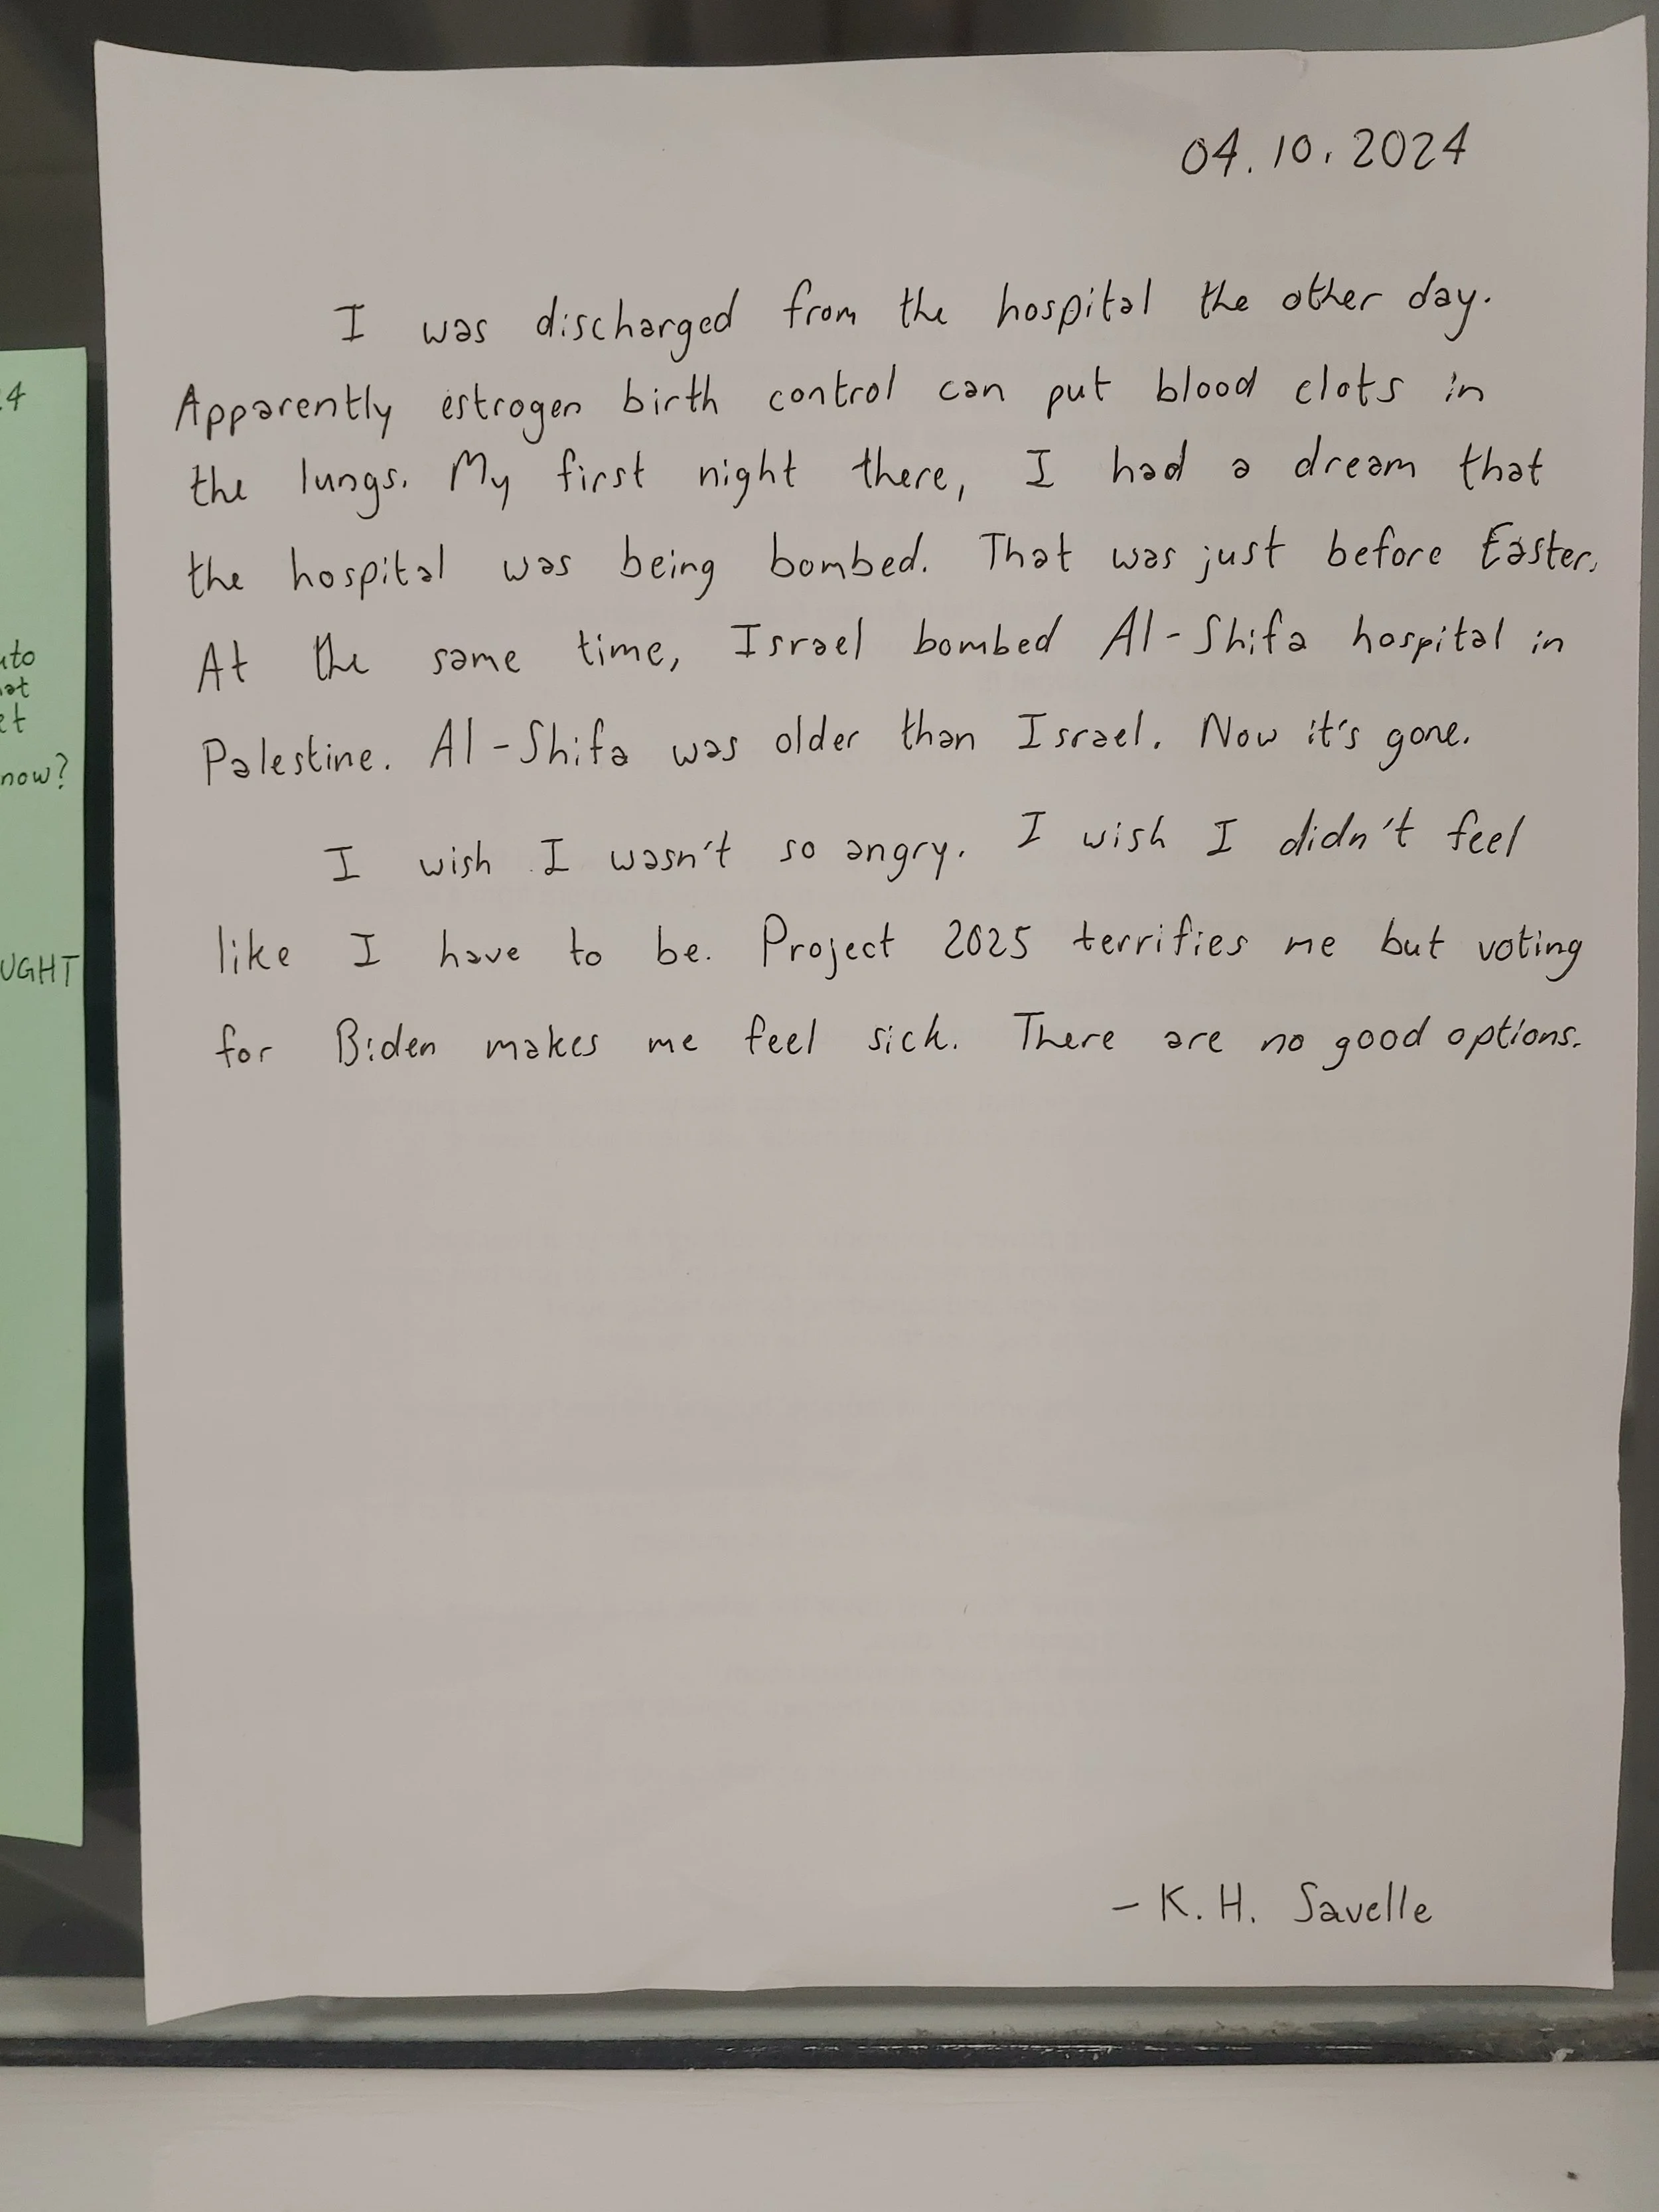 04.10.2024
I was discharged from the hospital the other day.
Apparently estrogen birth control can put blood clots in
the lungs. My first night there, I had a dream that
the hospital was being bombed. That was just before Easter.
At the same time, Israel bombed Al-Shifa hospital in
Palestine. Al-Shifa was older than Israel. Now it's gone.
I wish I wasn't so angry. I wish I didn't feel
like I have to be. Project 2025 terrifies me but voting
for Biden makes me feel sick. There are no good options.
- K. H. Savelle
4
et
now?
UGHT